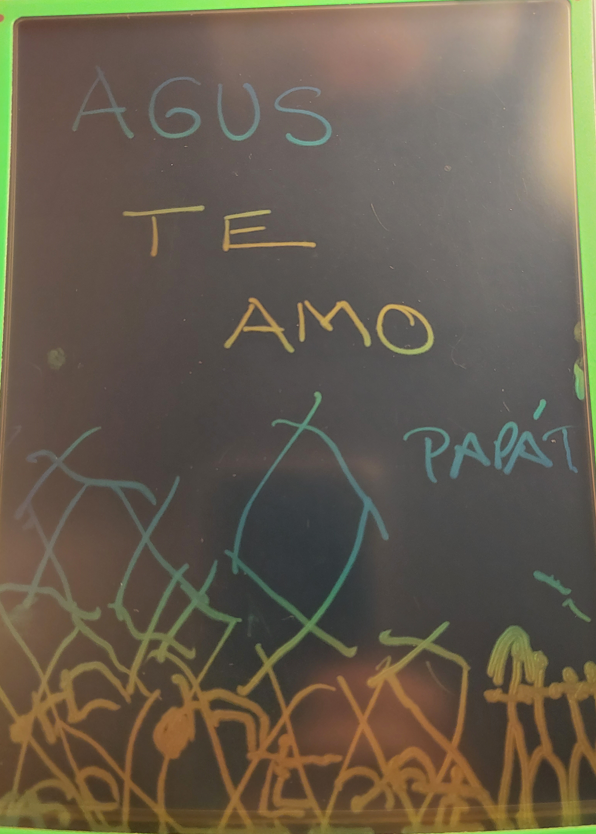 AGUS
TE
AMO
PAPÁT